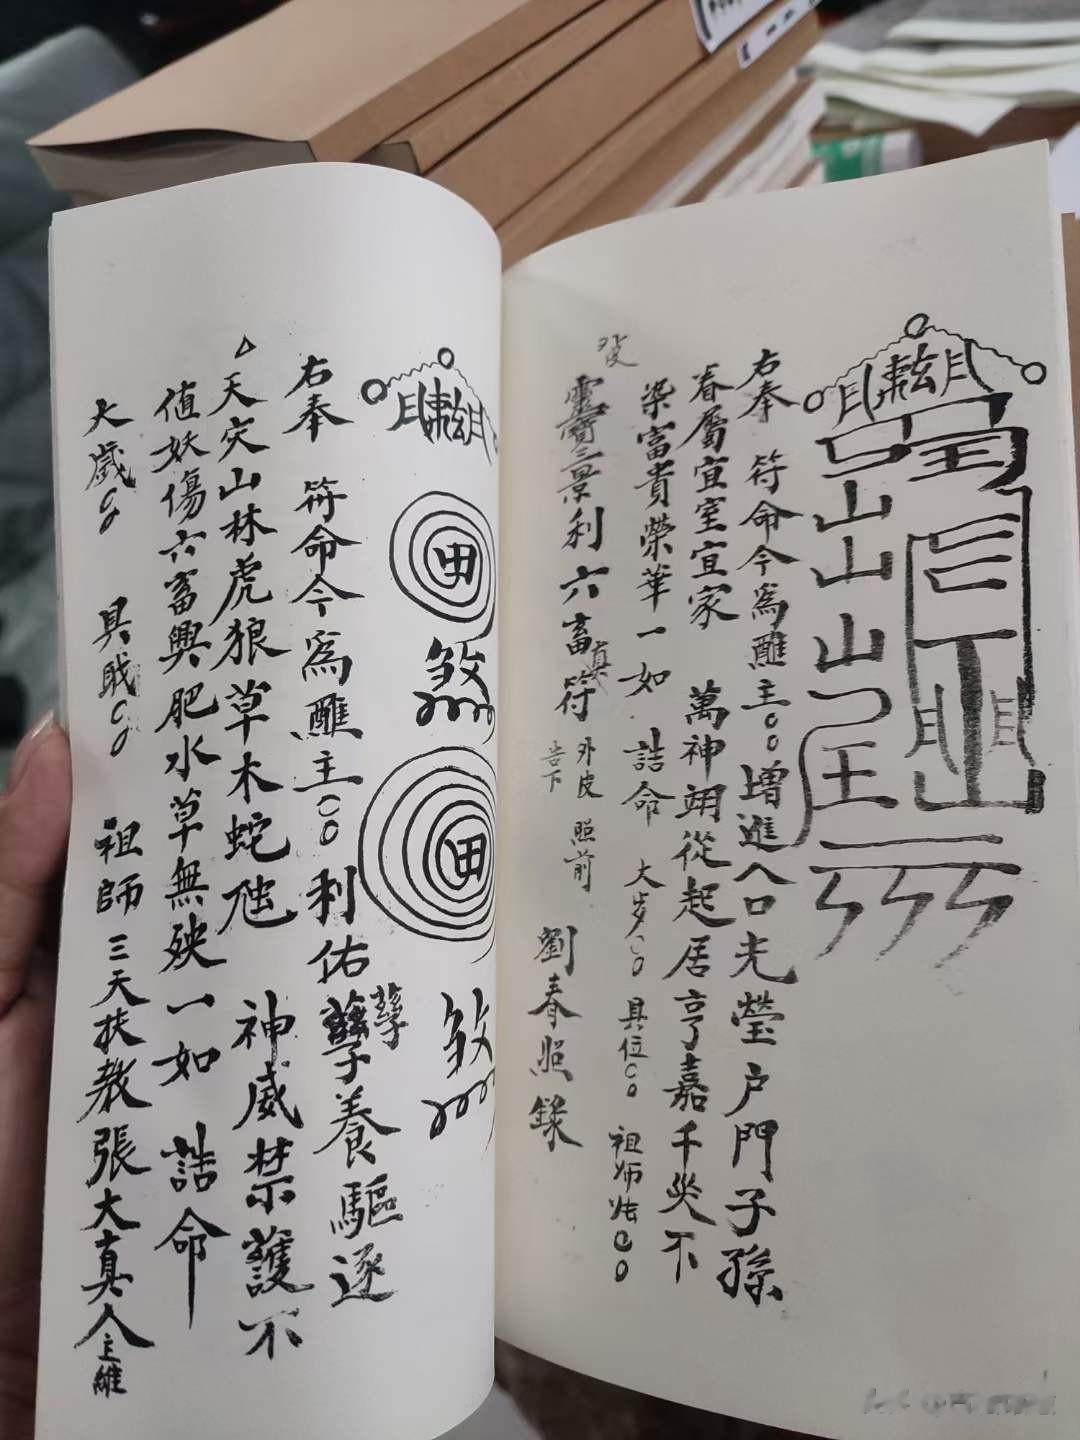 右奉 符命今為醮主〇〇增進人口光瑩户門子孫
眷屬宜室宜家 萬神翊從起居亨嘉千災不
染富貴榮華一如 誥命 大岁〇〇 具位〇〇 祖师〇〇
利六畜符 外皮 照前 劉春照錄
真
告下
田
煞
田
煞
右奉 符命今為醮主〇〇利佑孽養驅逐
孳
天灾山林虎狼草木蛇虺 神威禁護不
值妖傷六畜興肥水草無殃一如 誥命
大歲 具戝 祖師三天扶教張大真人主維